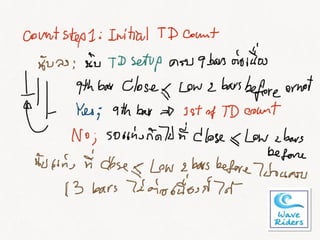 Count step 1: Initial TD Count
นับลง; นับ TD setup ครบ 9 bars ต่อเนื่อง
9th bar Close ≤ Low 2 bars before or not
Yes; 9th bar ⇒ 1st of TD count
No; รอแท่งถัดไปที่ close ≤ Low 2 bars
before
นับแท่ง ที่ close ≤ Low 2 bars before ไปจนครบ
13 bars ไม่ต่อเนื่องก็ได้
Wave
Riders